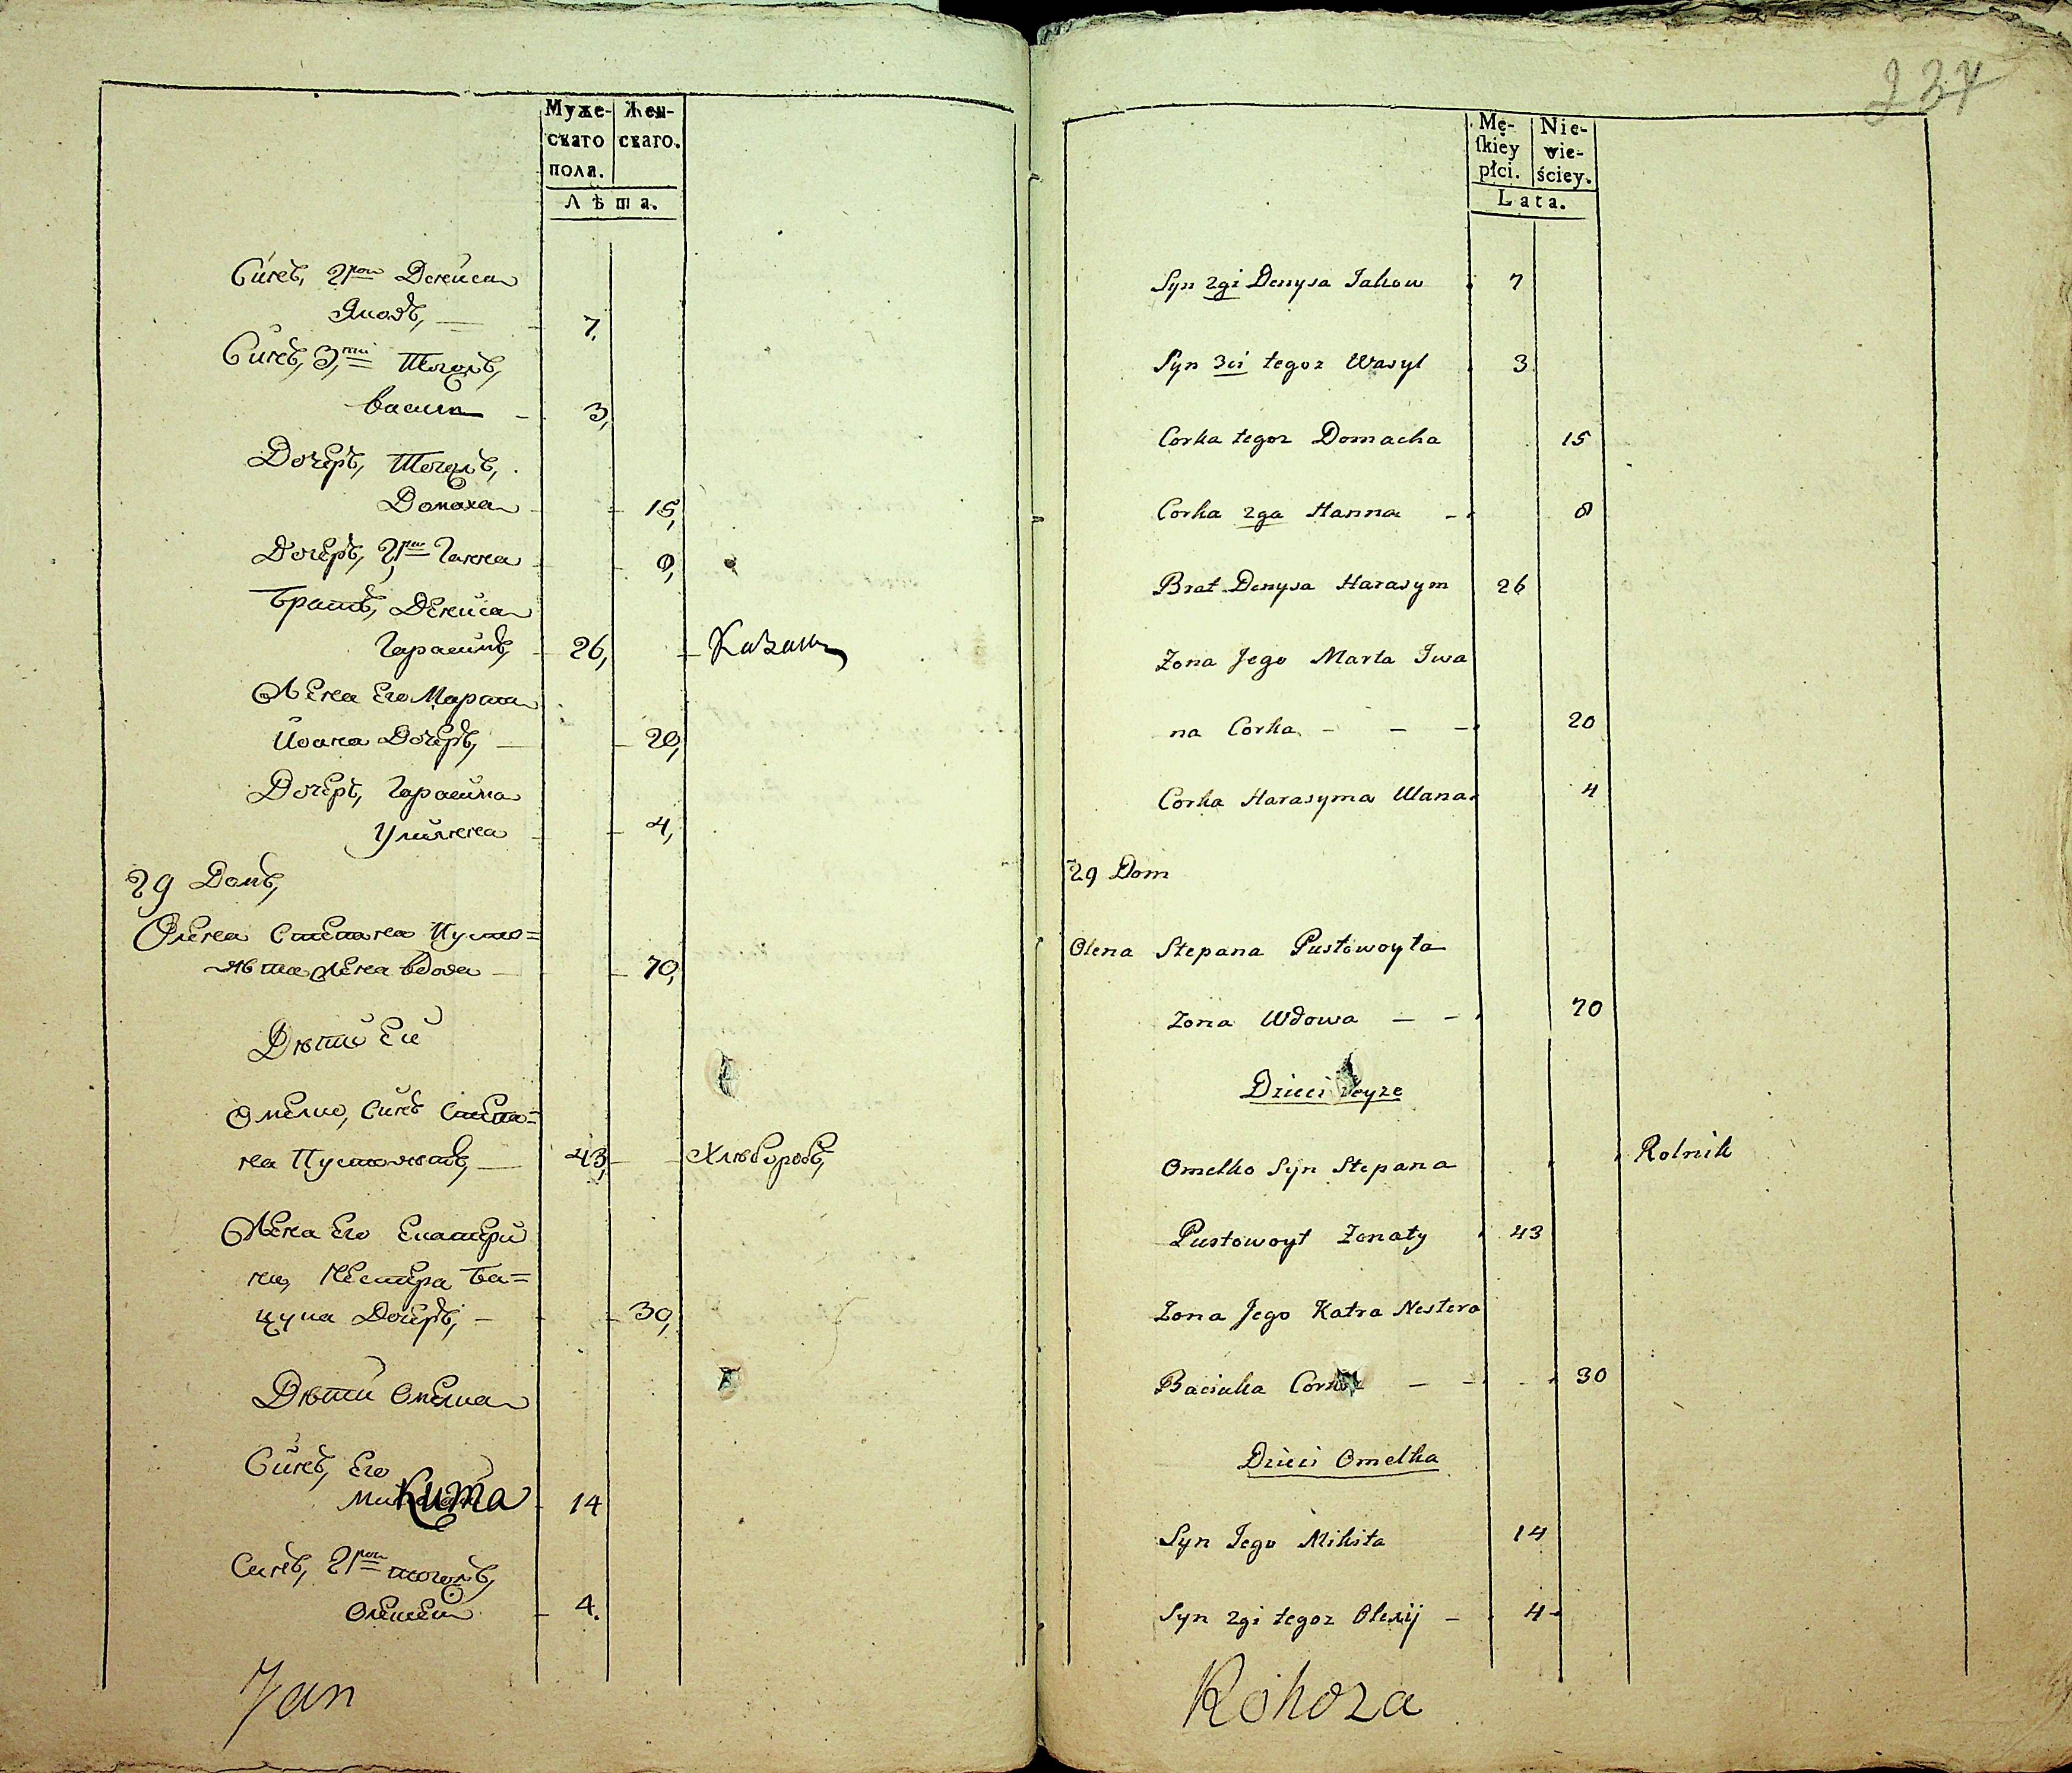 Муже-
скаго
пола.
Жен-
скаго.
Лѣта.
Синъ, 2рой Дениса
Яковъ, 7.
Синъ, 3тій Тогожъ,
василь 3,
Дочеръ, Тогожъ,
Домаха 15,
Дочеръ, 2рая Ганна 8,
Братъ, Дениса
Гарасимъ, 26, Казакъ
Жена Его Марта
Ивана Дочеръ, 20,
Дочеръ, Гарасима
Улиянна 4,
29 Домъ,
Олена Степана Пусто=
вѣта жена вдова 70,
Дѣти Еи
Омелко, Синъ Степа=
на Пустовѣтъ, 43, Хлѣборобъ,
Жена Его Екатери
на, Нестера Ба=
цука Дочеръ, 30,
Дѣти Омелка
Синъ, Его
Микита 14
Синъ, 2рой тогожъ,
Олексей 4.
Jan
237
Mę-
ſkiey
płci.
Nie-
wie-
ściey.
Lata.
Syn 2gi Denysa Jakow 7
Syn 3ci tegoz Wasyl 3
Corka tegoz Domacha 15
Corka 2ga Hanna - 8
Brat Denysa Harasym 26
Zona Jego Marta Iwa
na Corka - - - 20
Corka Harasyma Ulana 4
29 Dom
Olena Stepana Pustowoyta
Zona Wdowa - - 70
Dzieci Teyze
Omelko Syn Stepana Rolnik
Pustowoyt Zonaty 43
Zona Jego Katra Nestera
Baciuka Corka - - - 30
Dzieci Omelka
Syn Jego Mikita 14
Syn 2gi tegoz Olexij - 4
Rohoza